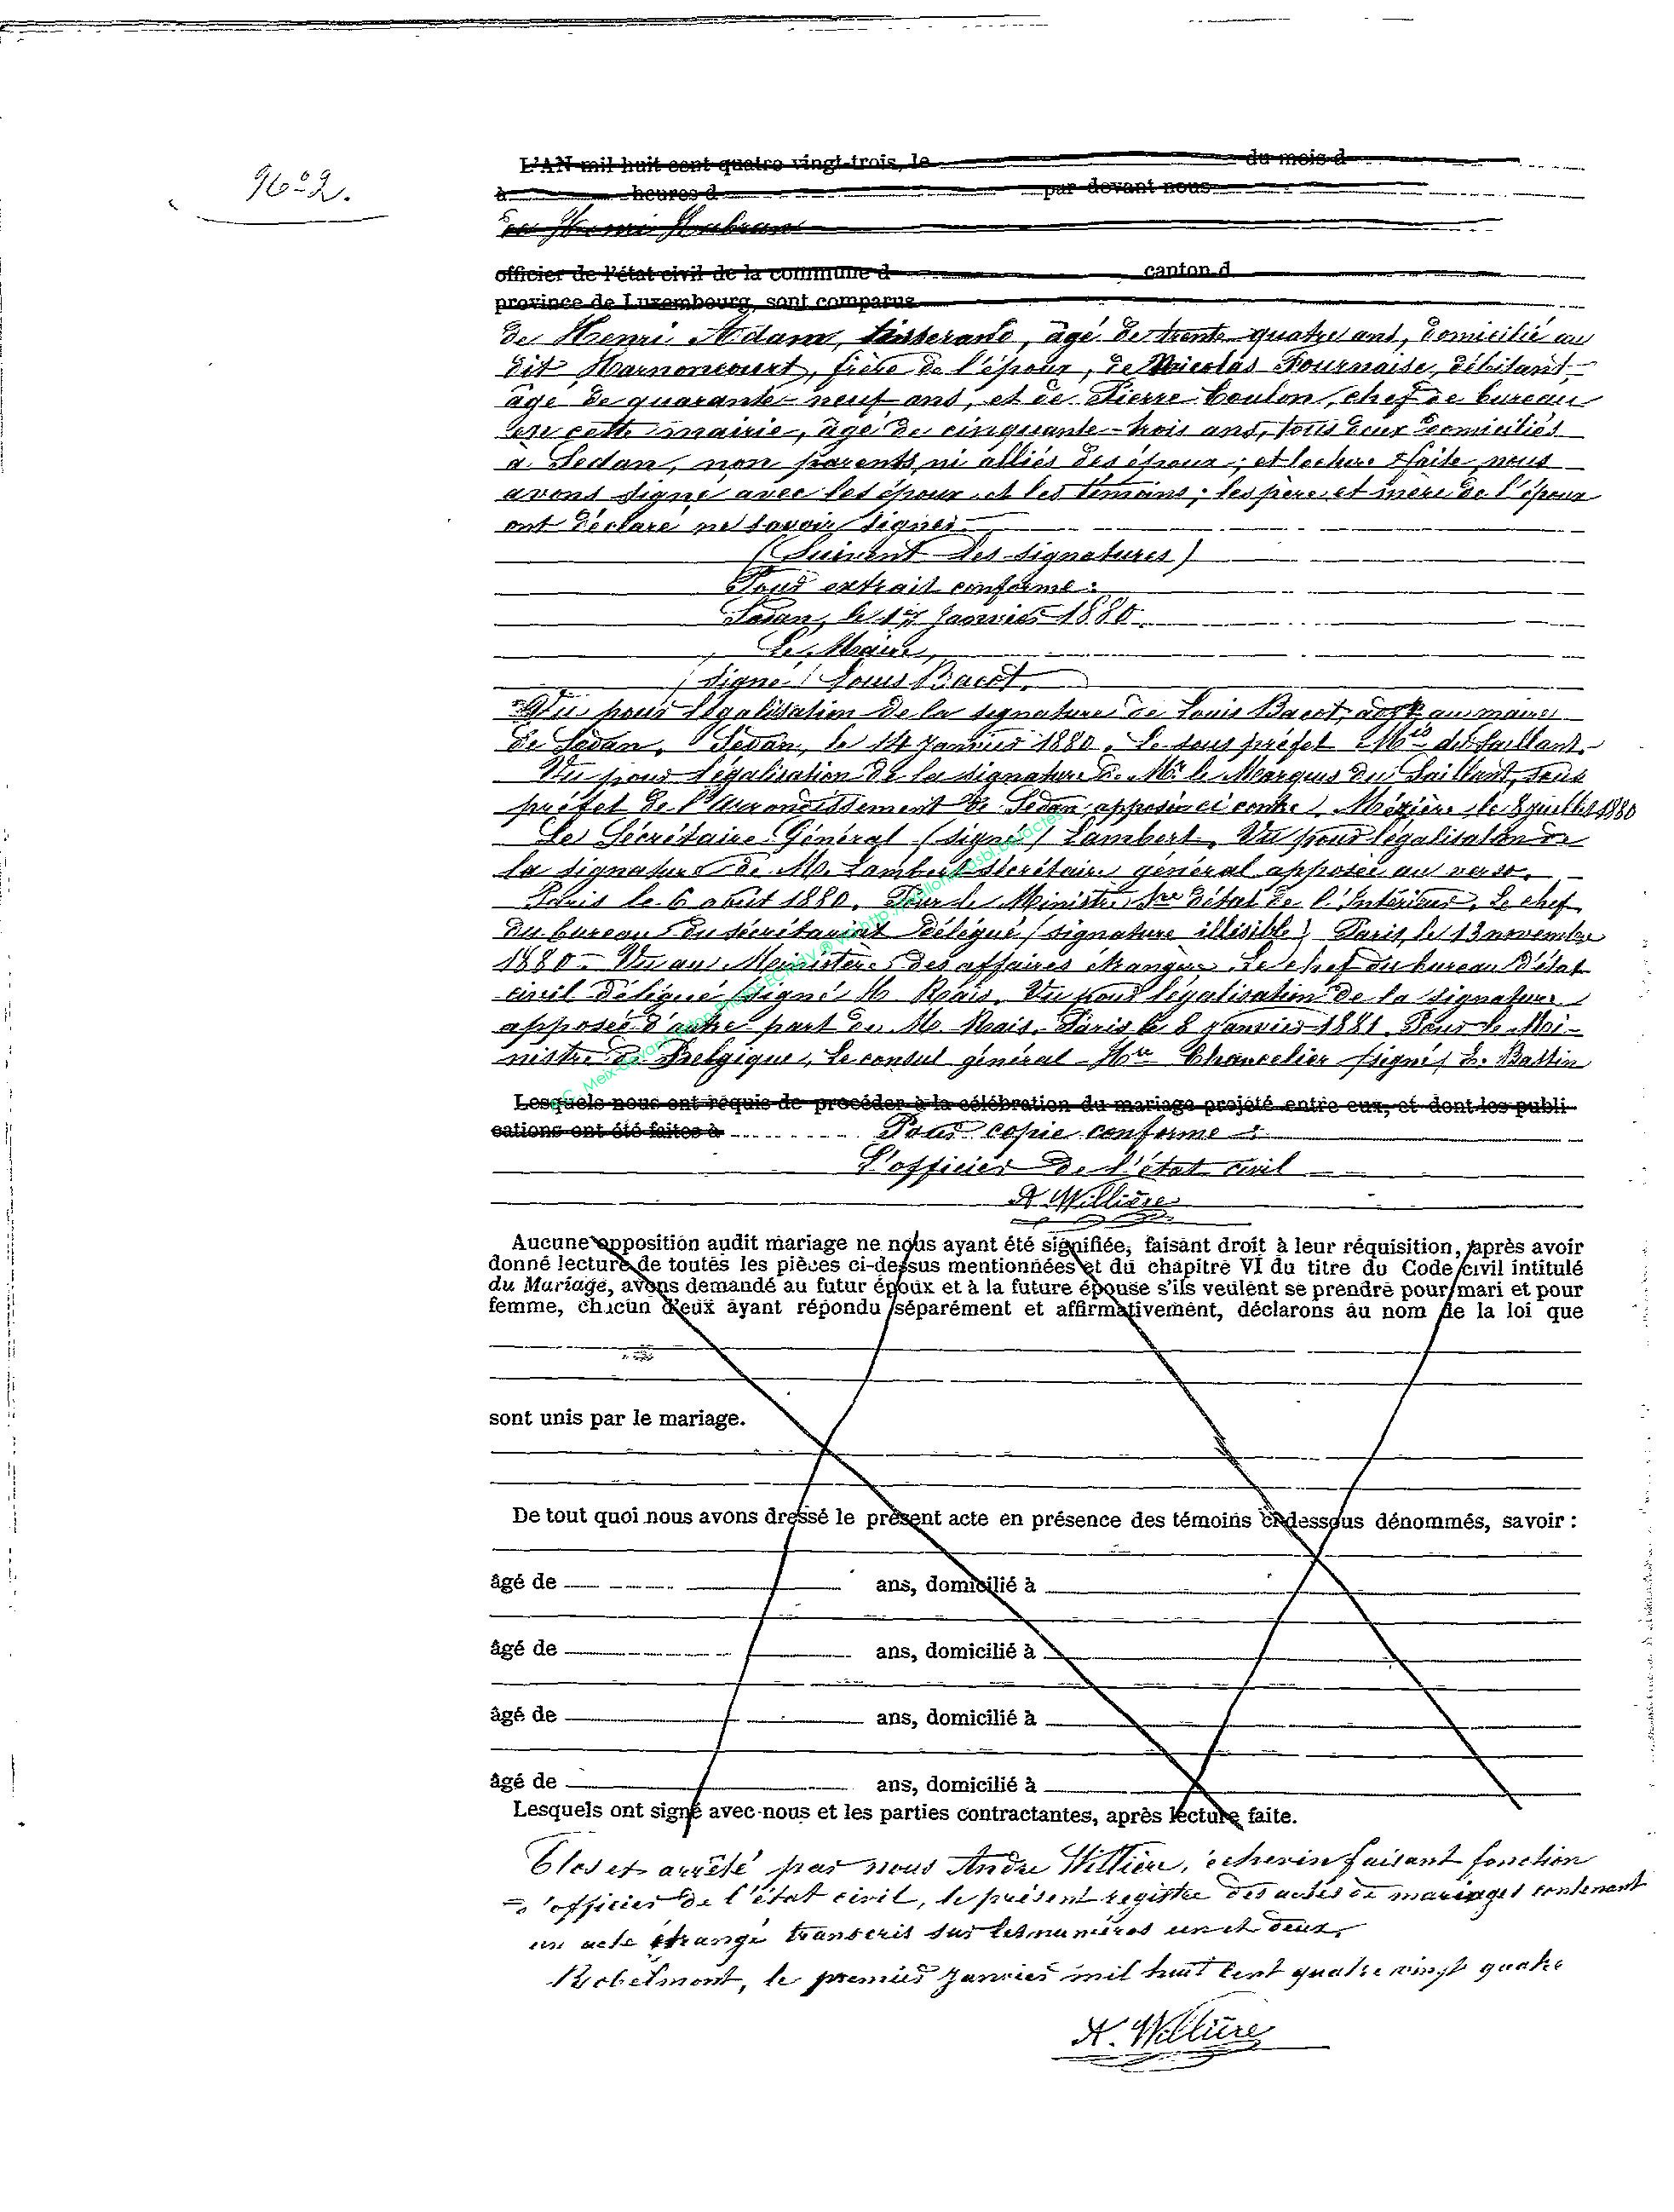 N° 2.
L'AN mil huit cent quatre vingt-trois, le du mois d
à heures d par devant nous
de Henri
officier de l'état civil de la commune d canton d
province de Luxembourg, sont comparus
de Henri Adam, tisserand, âgé de trente-quatre ans, domicilié au
dit Harnoncourt, frère de l'époux, de Nicolas Fournaise, débitant
âgé de quarante-neuf ans, et de Pierre Coulon, chef de bureau
de cette mairie, âgé de cinquante-trois ans, tous deux domiciliés
à Sedan, non parents ni alliés des époux ; et lecture faite, nous
avons signé avec les époux et les témoins ; les père et mère de l'époux
ont déclaré ne savoir signer.
(Suivent les signatures)
Pour extrait conforme :
Sedan, le 17 Janvier 1880.
Le Maire,
(signé) Louis Bacot.
Vu pour légalisation de la signature de Louis Bacot, adjt au maire
de Sedan. Sedan, le 14 Janvier 1880. Le sous préfet Mis du Saillant.
Vu pour légalisation de la signature de Mr le Marquis du Saillant, sous
préfet de l'Arrondissement de Sedan apposée ci contre. Mézières, le 8 juillet 1880
Le Sécrétaire Général (signé) Lambert. Vu pour légalisation de
la signature de M. Lambert secrétaire général apposée au verso.
Paris le 6 août 1880. Pour le Ministre Sre d'état de l'Intérieur. Le chef
du bureau du sécrétariat délégué (signature illisible) Paris, le 13 novembre
1880. Vu au Ministère des affaires étrangères. Le chef du bureau d'état
civil délégué signé H. Rais. Vu pour légalisation de la signature
apposée d'autre part de M. Rais. Paris le 8 janvier 1881. Pour le Mi-
nistre de Belgique, Le consul général Chancelier (signé) E. Bastin
Lesquels nous ont requis de procéder à la célébration du mariage projeté entre eux, et dont les publi
cations ont été faites à Pour copie conforme :
L'officier de l'état civil
A Willière
Aucune opposition audit mariage ne nous ayant été signifiée, faisant droit à leur réquisition, après avoir
donné lecture de toutes les pièces ci-dessus mentionnées et du chapitre VI du titre du Code civil intitulé
du Mariage, avons demandé au futur époux et à la future épouse s'ils veulent se prendre pour mari et pour
femme, chacun d'eux ayant répondu séparément et affirmativement, déclarons au nom de la loi que
sont unis par le mariage.
De tout quoi nous avons dressé le présent acte en présence des témoins ci-dessous dénommés, savoir :
âgé de ans, domicilié à
âgé de ans, domicilié à
âgé de ans, domicilié à
âgé de ans, domicilié à
Lesquels ont signé avec nous et les parties contractantes, après lecture faite.
Clos et arrêté par nous André Willière, échevin faisant fonction
d'officier de l'état civil, le présent registre des actes de mariages contenant
un acte étrangé transcris sur les numéros un et deux.
Robelmont, le premier Janvier mil huit cent quatre vingt quatre
A. Willière